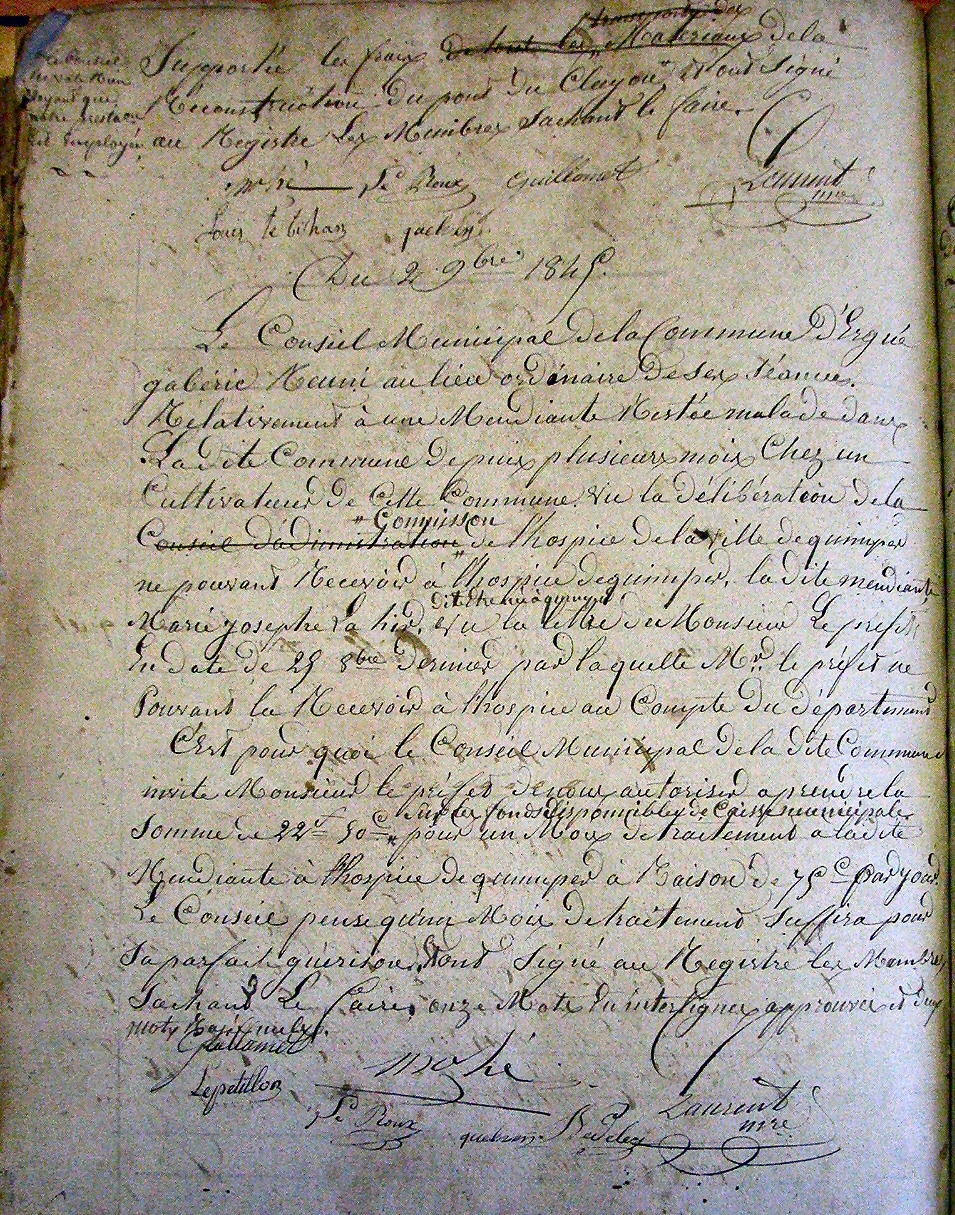 Supporté les frais de tout les Matériaux de la
transports des
Reconstruction du pont du Cluyou et ont signé
au Registre Les Membres Sachant le faire.
est employé
Le Roux Guillamet Laurent
mre
Louis le bihan
Du 2 9bre 1845.
Le Conseil Municipal de la Commune d'Ergué
gabéric Réuni au lieu ordénaire de ses séance.
Rélativement à une Mendiante Restée malade dans
La dite Commune depuis plusieurs mois Chez un
Cultivateur de Cette Commune. vu la délibération de la
" Commisson
Conseil d'adimistration de l'hospice de la ville de quimper
ne pouvant Recevoir à l'hospice de quimper, la dite mendiante
dit être née à quimper
Marie josephe La hir, et vu la lettre de Monsieur Le préfet
En date de 25 8bre dernier par laquelle Mr. le préfet ne
Pouvant la Recevoir à l'hospice au Compte du département
C'Est pour quoi le Conseil Municipal de la dite Commune
invite Monsieur le préfet de nous autoriser a prendre la
Sur les fonds disponibles de Caisse municipale
Somme de 22f 50c pour un Mois de traitement a la dite
Mendiante à l'hospice de quimper à Raison de 75c par jour.
Le Conseil pense qu'un Mois de traitement suffira pour
Sa parfait guérison. Et ont Signé au Registre les Membres
Sachant Le faire, onze Mots En interlignes approuvés et deux
mots Rayés nuls.
Guillamet
Lepetillon mahé Laurent
mre
Le Roux